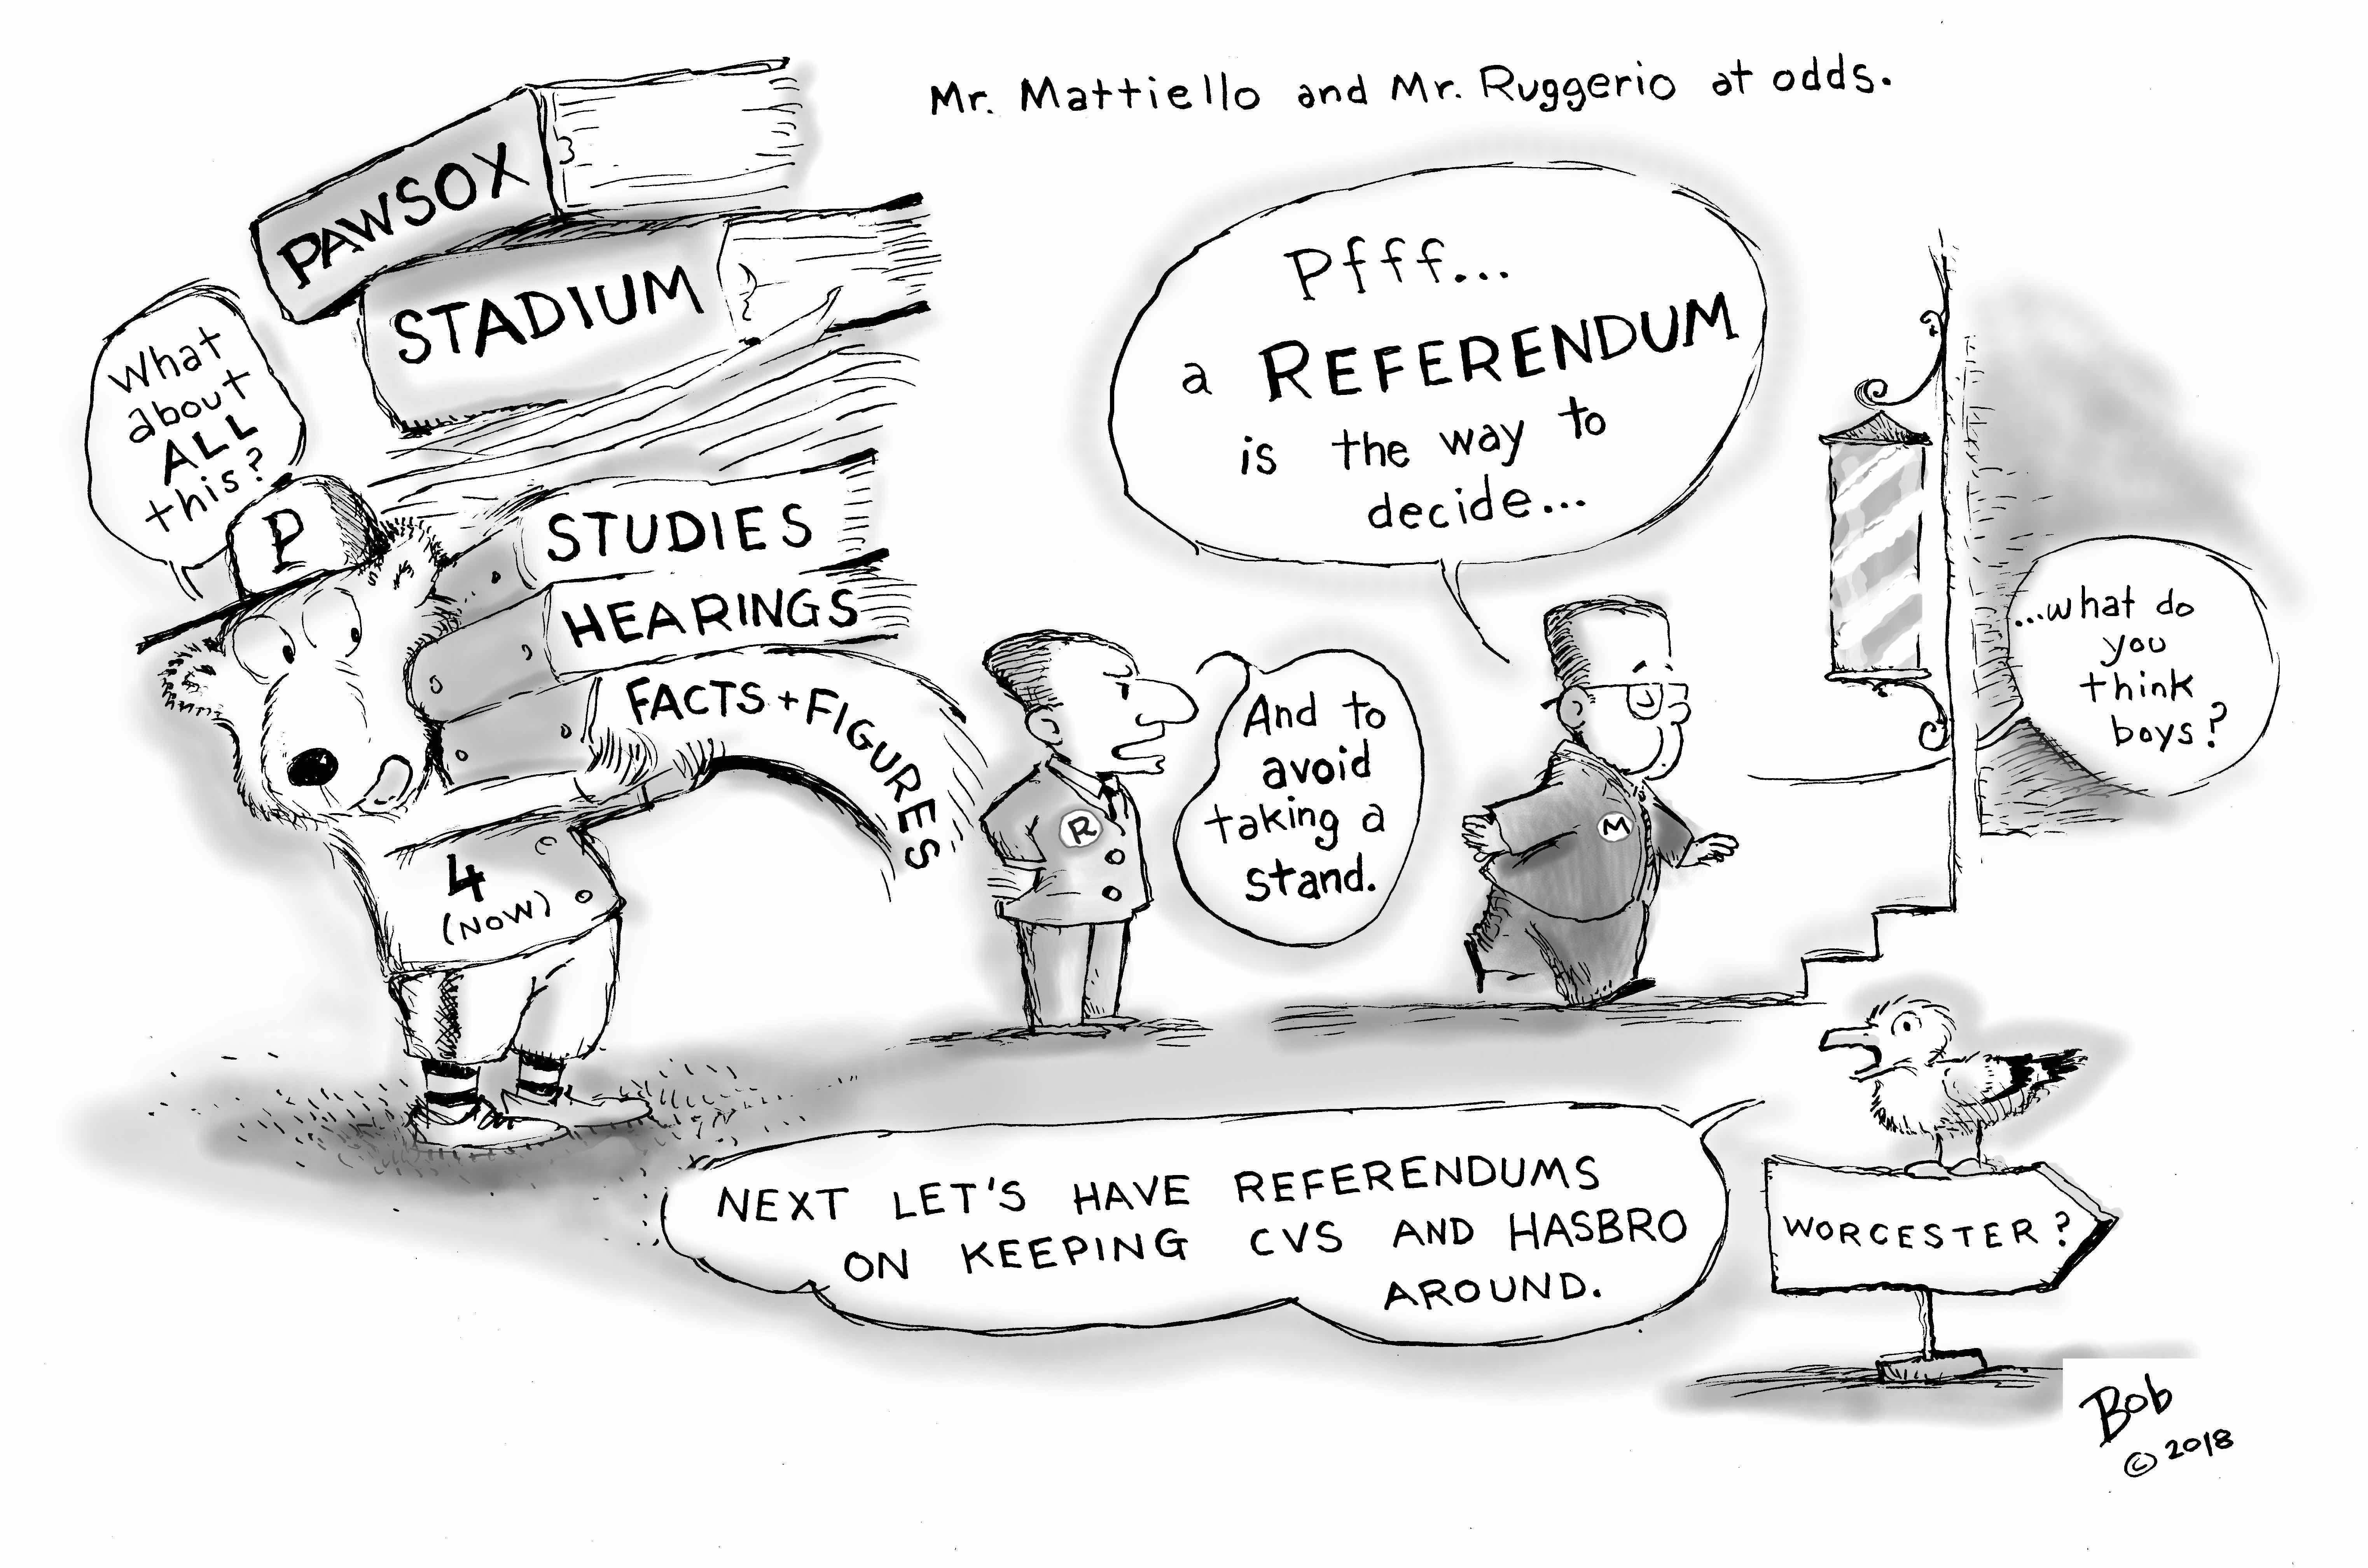 Mr. Mattiello and Mr. Ruggerio at odds.
PAWSOX
STADIUM
What
about
ALL
this?
P
STUDIES
HEARINGS
FACTS + FIGURES
4
(NOW)
R
And to
avoid
taking a
stand.
Pfff...
a REFERENDUM
is the way to
decide...
M
...what do
you
think
boys?
NEXT LET'S HAVE REFERENDUMS
ON KEEPING CVS AND HASBRO
AROUND.
WORCESTER?
Bob
© 2018